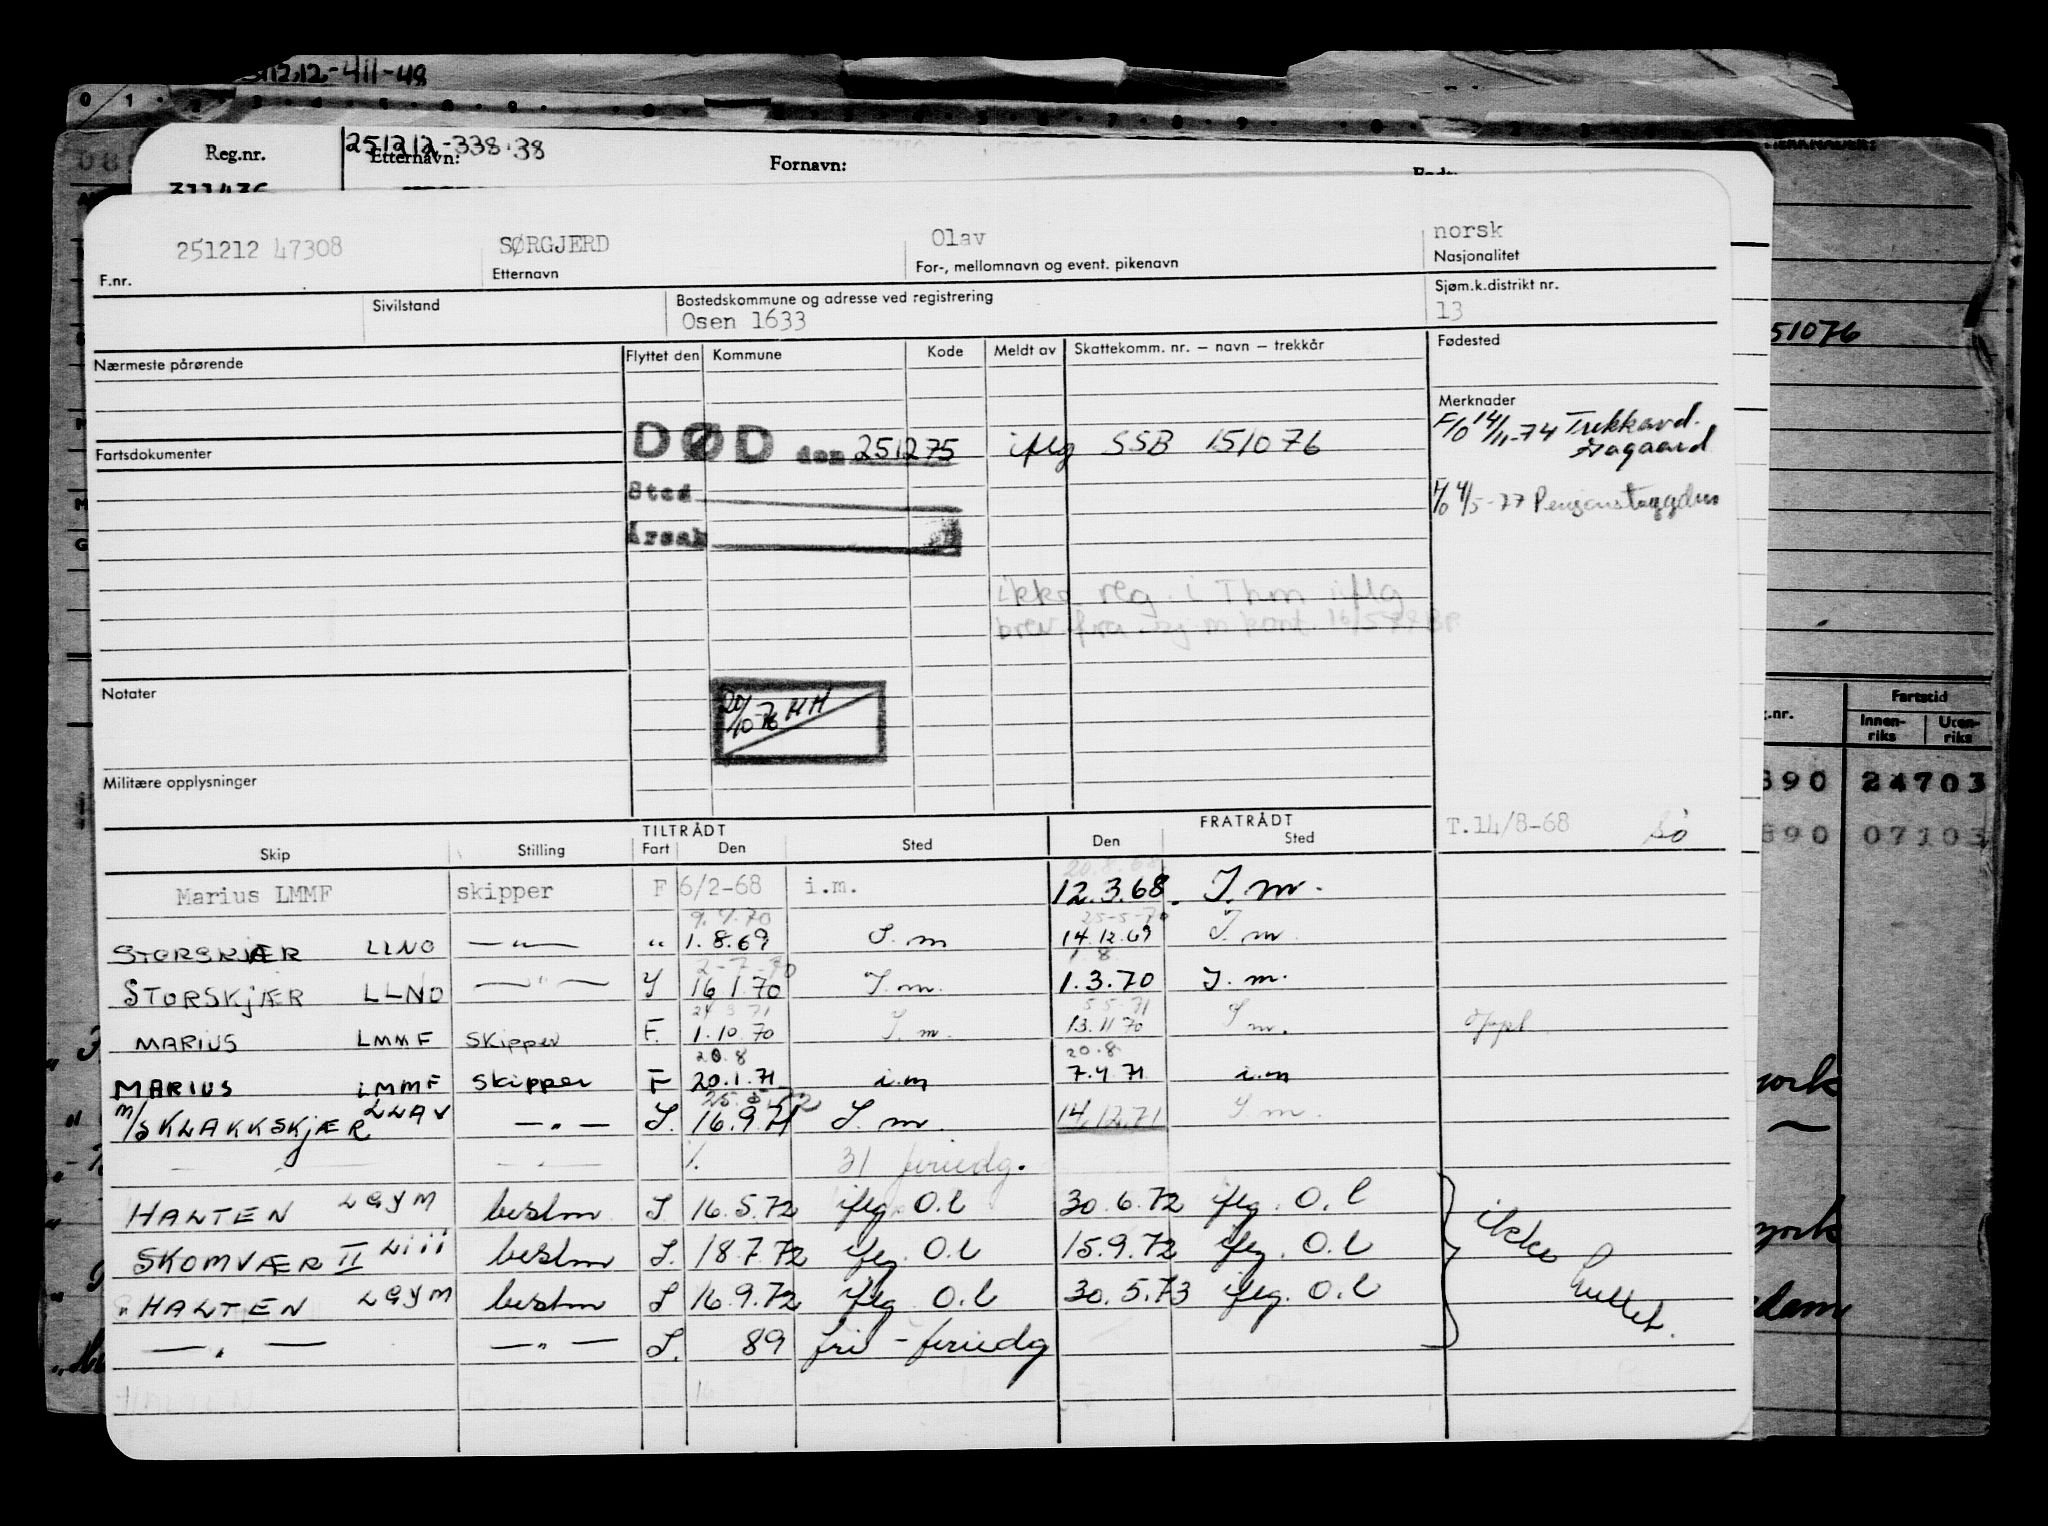 251212-411-48
Reg.nr. 251212-338.38
Etternavn: Fornavn:
251212 47308 SØRGJERD Olav norsk
F.nr. Etternavn For-, mellomnavn og event. pikenavn Nasjonalitet
Sivilstand Bostedskommune og adresse ved registrering Sjøm.k.distrikt nr.
Osen 1633 13
Nærmeste pårørende Flyttet den Kommune Kode Meldt av Skattekomm. nr. – navn – trekkår Fødested
51076
Merknader
F/O 14/11-74 Trekkavd.
Fartsdokumenter DØD den 251275 iflg SSB 151076
Sted
4/5-77 Pensjonstrygden
Årsak
ikke reg. i Thm iflg
brev fra
Notater
20/10-76 HH
Militære opplysninger
g.nr. Fartstid
Innen-riks Uten-riks
390 24703
390 07103
TILTRÅDT FRATRÅDT T.14/8-68
Skip Stilling Fart Den Sted Den Sted
20.8.68
Marius LMMF skipper F 6/2-68 i.m. 12.3.68. I.m.
9.7.70 25-5-70
STORSKJÆR LLNO —"— " 1.8.69 I.m 14.12.69 I.m.
2-7-70 1.8
STORSKJÆR LLNO —"— I 16.1.70 I.m. 1.3.70 I.m.
24 3 71 5.5.71
MARIUS LMMF Skipper F. 1.10.70 I.m. 13.11 70 I m. Oppl
20.8 20.8
MARIUS LMMF Skipper F 20.1.71 i.m 7.4.71 i.m
m/SKLAKKSKJÆR LLAV —"— I. 16.9.71 I.m. 14.12.71 I.m.
— " — —"— 31 feriedg.
HALTEN LGYM bestm I. 16.5.72 iflg O.l 30.6.72 iflg. O.l
SKOMVÆR II Liii bestm I. 18.7.72 iflg. O.l 15.9.72 iflg. O.l
HALTEN LGYM bestm I 16.9.72 iflg. O.l 30.5.73 iflg. O.l
ikke hullet.
— " — —"— I. 89 fri - feriedg